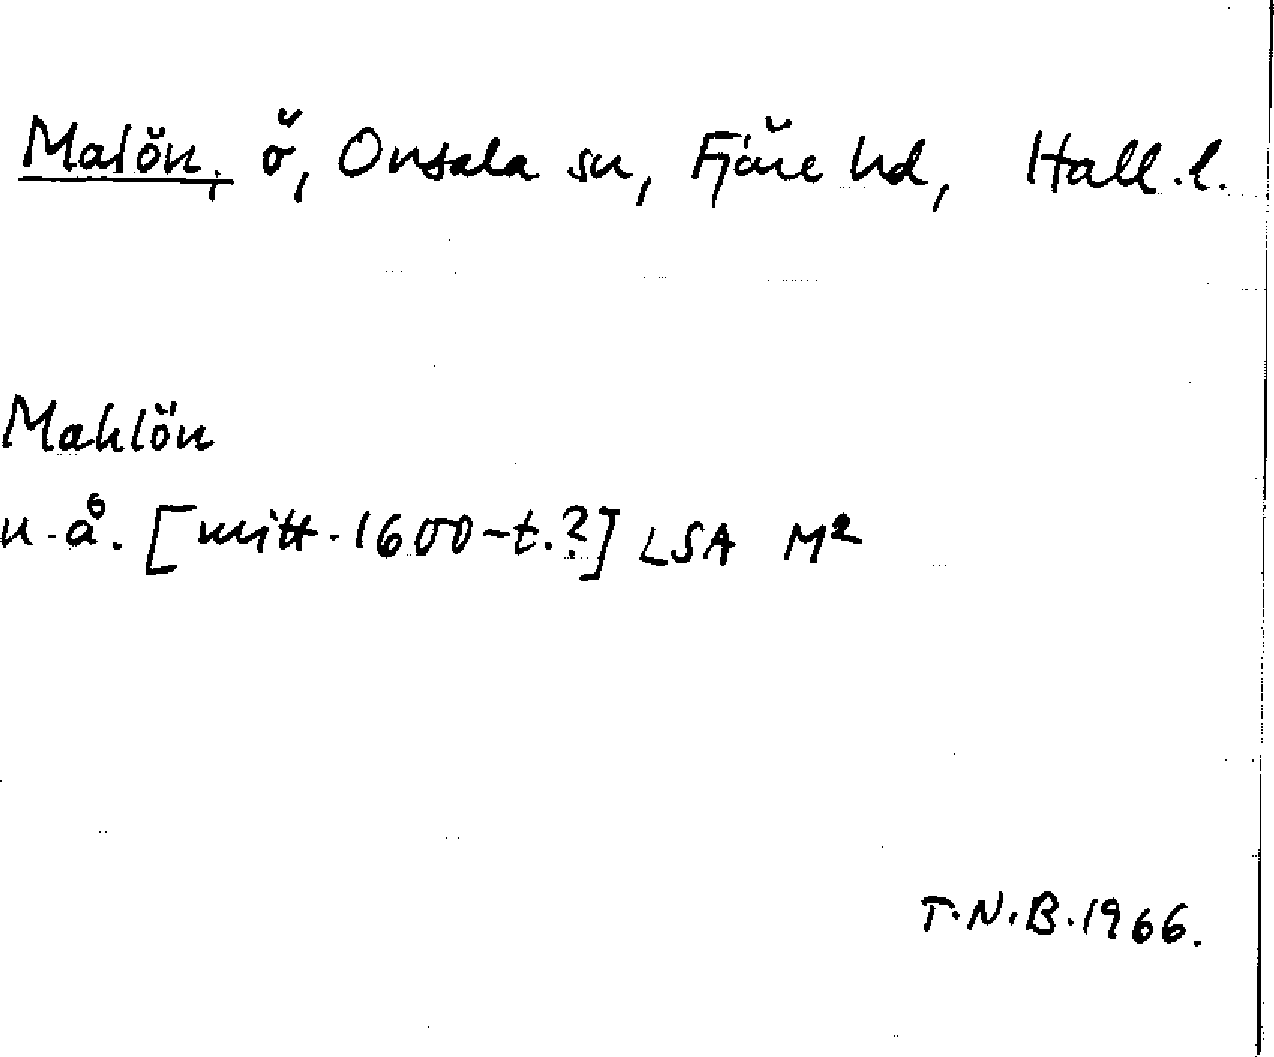 Malön, ö, Onsala sn, Fjäre hd, Hall.l.
Mahlön
u.å. [mitt.1600-t.?] LSA M²
T.N.B.1966.